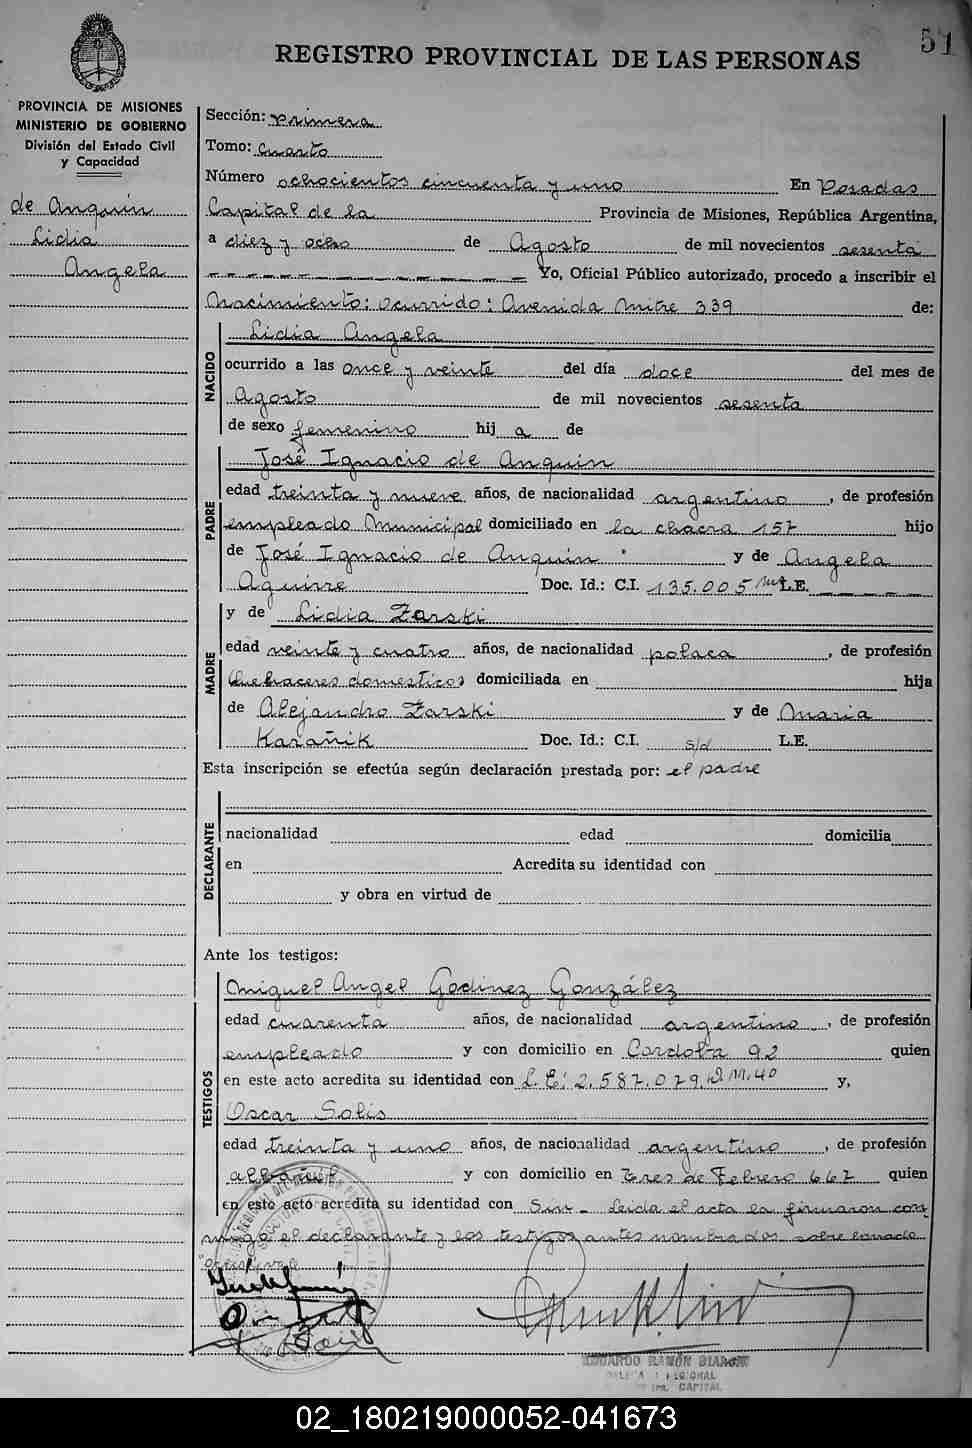 51
REGISTRO PROVINCIAL DE LAS PERSONAS
PROVINCIA DE MISIONES
MINISTERIO DE GOBIERNO
División del Estado Civil
y Capacidad
de Anquin
Lidia
Angela
Sección: Primera
Tomo: Cuarto
Número ochocientos cincuenta y uno En Posadas
Capital de la Provincia de Misiones, República Argentina,
a diez y ocho de Agosto de mil novecientos sesenta
Yo, Oficial Público autorizado, procedo a inscribir el
Nacimiento: ocurrido: Avenida Mitre 339 de:
NACIDO
Lidia Angela
ocurrido a las once y veinte del día doce del mes de
Agosto de mil novecientos sesenta
de sexo femenino hij a de
PADRE
José Ignacio de Anquin
edad treinta y nueve años, de nacionalidad argentino, de profesión
empleado Municipal domiciliado en la chacra 157 hijo
de José Ignacio de Anquin y de Angela
Aguirre Doc. Id.: C.I. 135.005 L.E.
MADRE
y de Lidia Zarski
edad veinte y cuatro años, de nacionalidad polaca, de profesión
Quehaceres domesticos domiciliada en hija
de Alejandro Zarski y de Maria
Karañik Doc. Id.: C.I. s/d L.E.
Esta inscripción se efectúa según declaración prestada por: el padre
DECLARANTE
nacionalidad edad domicilia
en Acredita su identidad con
y obra en virtud de
Ante los testigos:
TESTIGOS
Miguel Angel Godinez González
edad cuarenta años, de nacionalidad argentino, de profesión
empleado y con domicilio en Cordoba 92 quien
en este acto acredita su identidad con L.E: 2.587.079. D.M. 40 y,
Oscar Solis
edad treinta y uno años, de nacionalidad argentino, de profesión
albañil y con domicilio en Tres de Febrero 667 quien
en este acto acredita su identidad con Sin- Leida el acta la firmaron con-
migo el declarante y los testigos antes nombrados. sobre borrado
EDUARDO RAMÓN BIANCHI
CAPITAL
02_180219000052-041673